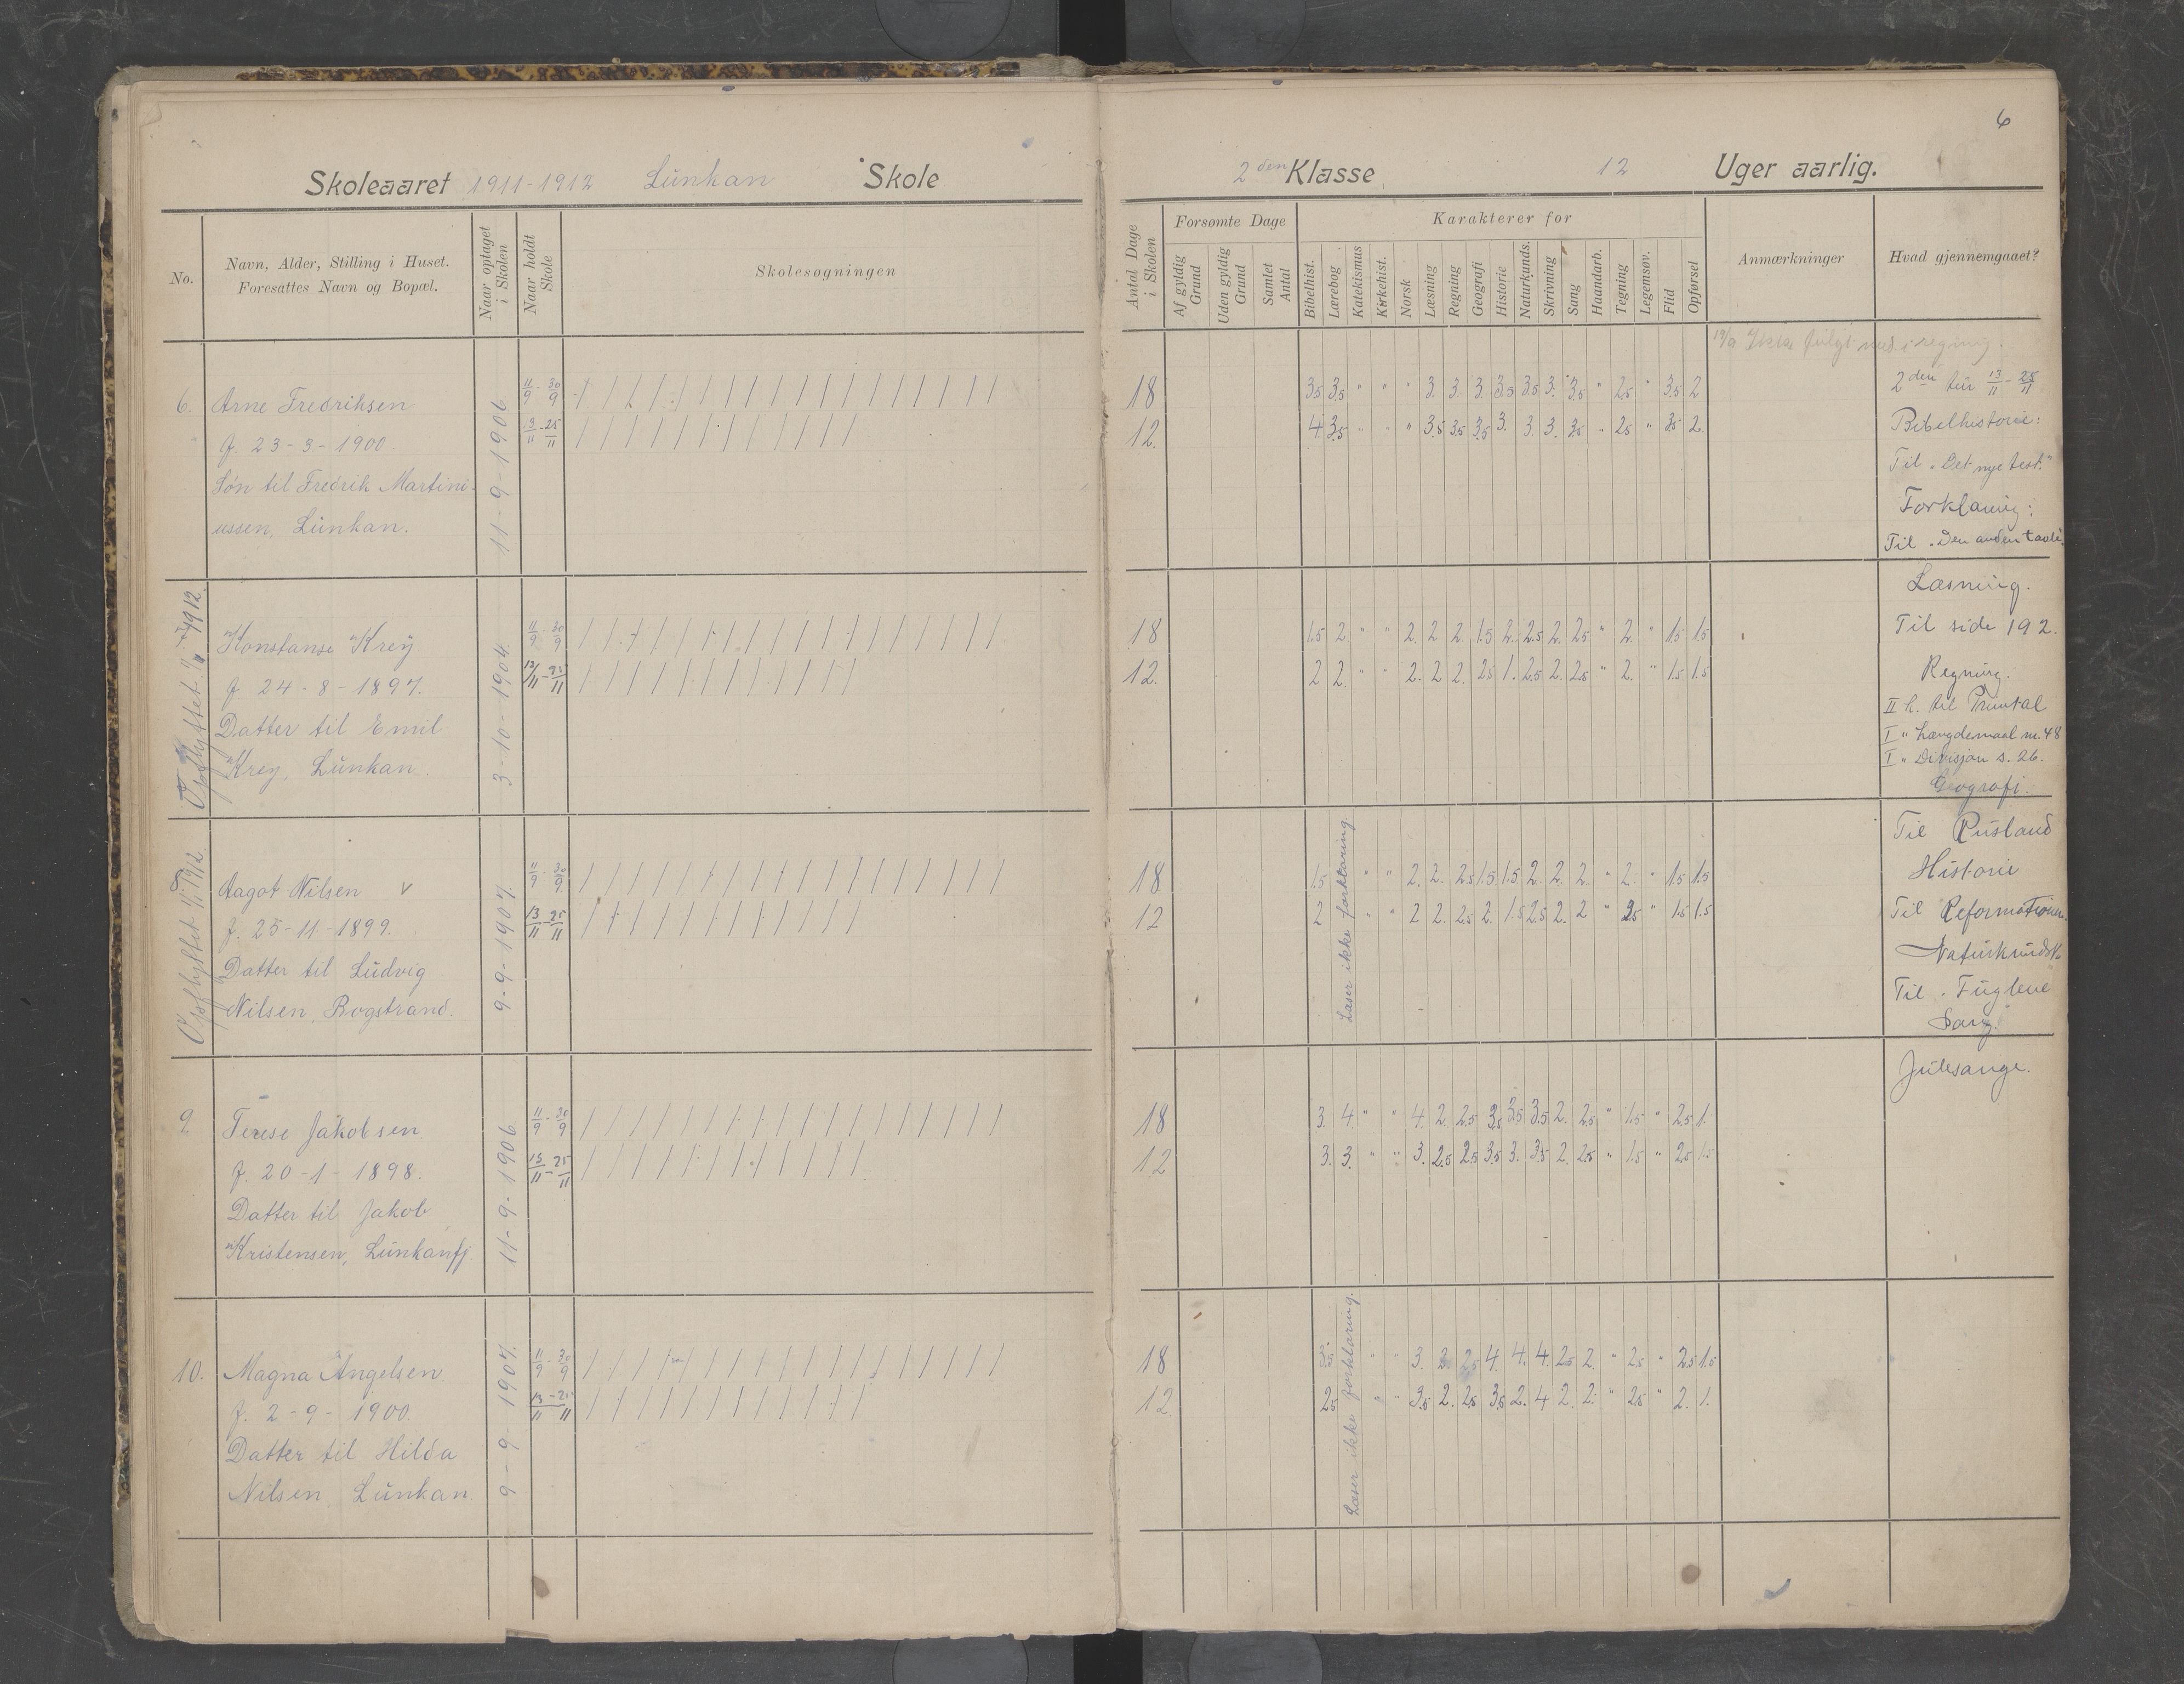 6
Skoleaaret 1911-1912 Lunkan Skole
2den Klasse 12 Uger aarlig.
No.
Navn, Alder, Stilling i Huset.
Foresattes Navn og Bopæl.
Naar optaget
i Skolen
Naar holdt
Skole
Skolesøgningen
Antal Dage
i Skolen
Forsømte Dage
Af gyldig
Grund
Uden gyldig
Grund
Samlet
Antal
Karakterer for
Bibelhist.
Lærebog
Katekismus
Kirkehist.
Norsk
Læsning
Regning
Geografi
Historie
Naturkunds.
Skrivning
Sang
Haandarb.
Tegning
Legemsøv.
Flid
Opførsel
Anmærkninger
Hvad gjennemgaaet?
6. Arne Fredriksen
f. 23-3-1900.
Søn til Fredrik Martini-
ussen, Lunkan.
11-9-1906
11/9 - 30/9
13/11 - 25/11
18 3.5 3.5 " " " 3. 3. 3. 3.5 3.5 3. 3.5 " 2.5 " 3.5 2
12. 4 3.5 " " " 3.5 3.5 3.5 3. 3. 3. 3.5 " 2.5 " 3.5 2.
Ikke fulgt med i regning.
Konstanse Krey
f. 24-8-1897.
Datter til Emil
Krey, Lunkan.
3-10-1904
11/9 - 30/9
13/11 - 25/11
18 1.5 2. " " 2. 2 2. 1.5 2. 2.5 2. 2.5 " 2. " 1.5 1.5
12. 2 2. " " 2. 2 2. 2.5 1. 2.5 2. 2.5 " 2. " 1.5 1.5
8. Aagot Nilsen v
f. 25-11-1899.
Datter til Ludvig
Nilsen, Bogstrand.
9-9-1907.
11/9 - 30/9
13/11 - 25/11
Læser ikke forklaring
18 1.5 " " 2. 2. 2.5 1.5 1.5 2. 2. 2. " 2. " 1.5 1.5
12 2 " " 2 2. 2.5 2. 1.5 2.5 2. 2 " 2.5 " 1.5 1.5
9 Terese Jakobsen
f. 20-1-1898.
Datter til Jakob
Kristensen, Lunkanfj.
11-9-1906
11/9 - 30/9
13/11 - 25/11
18 3. 4. " " 4. 2. 2.5 3.5 3.5 3.5 2. 2.5 " 1.5 " 2.5 1.
12 3. 3. " " 3. 2.5 2.5 3.5 3. 3.5 2. 2.5 " 1.5 " 2.5 1.5
10. Magna Angelsen
f. 2-9-1900.
Datter til Hilda
Nilsen, Lunkan
9-9-1907.
11/9 - 30/9
13/11 - 25/11
Læser ikke forklaring.
18 " " 3. 2 2.5 4. 4. 4. 2.5 2. " 2.5 " 2.5 1.5
12. 2.5 " " 3.5 2. 2.5 3.5 2. 4 2. 2. " 2.5 " 2. 1.
2den tur 13/11 - 25/11
Bibelhistorie:
Til "Det nye test."
Forklaring:
Til "Den anden tavle."
Læsning.
Til side 192.
Regning.
II h. til Primtal
I " Længdemaal nr. 48
I " Divisjon s. 26.
Geografi.
Til Rusland
Historie
Til Reformationen.
Naturkundsk.
Til "Fuglene"
Sang.
Julesange.